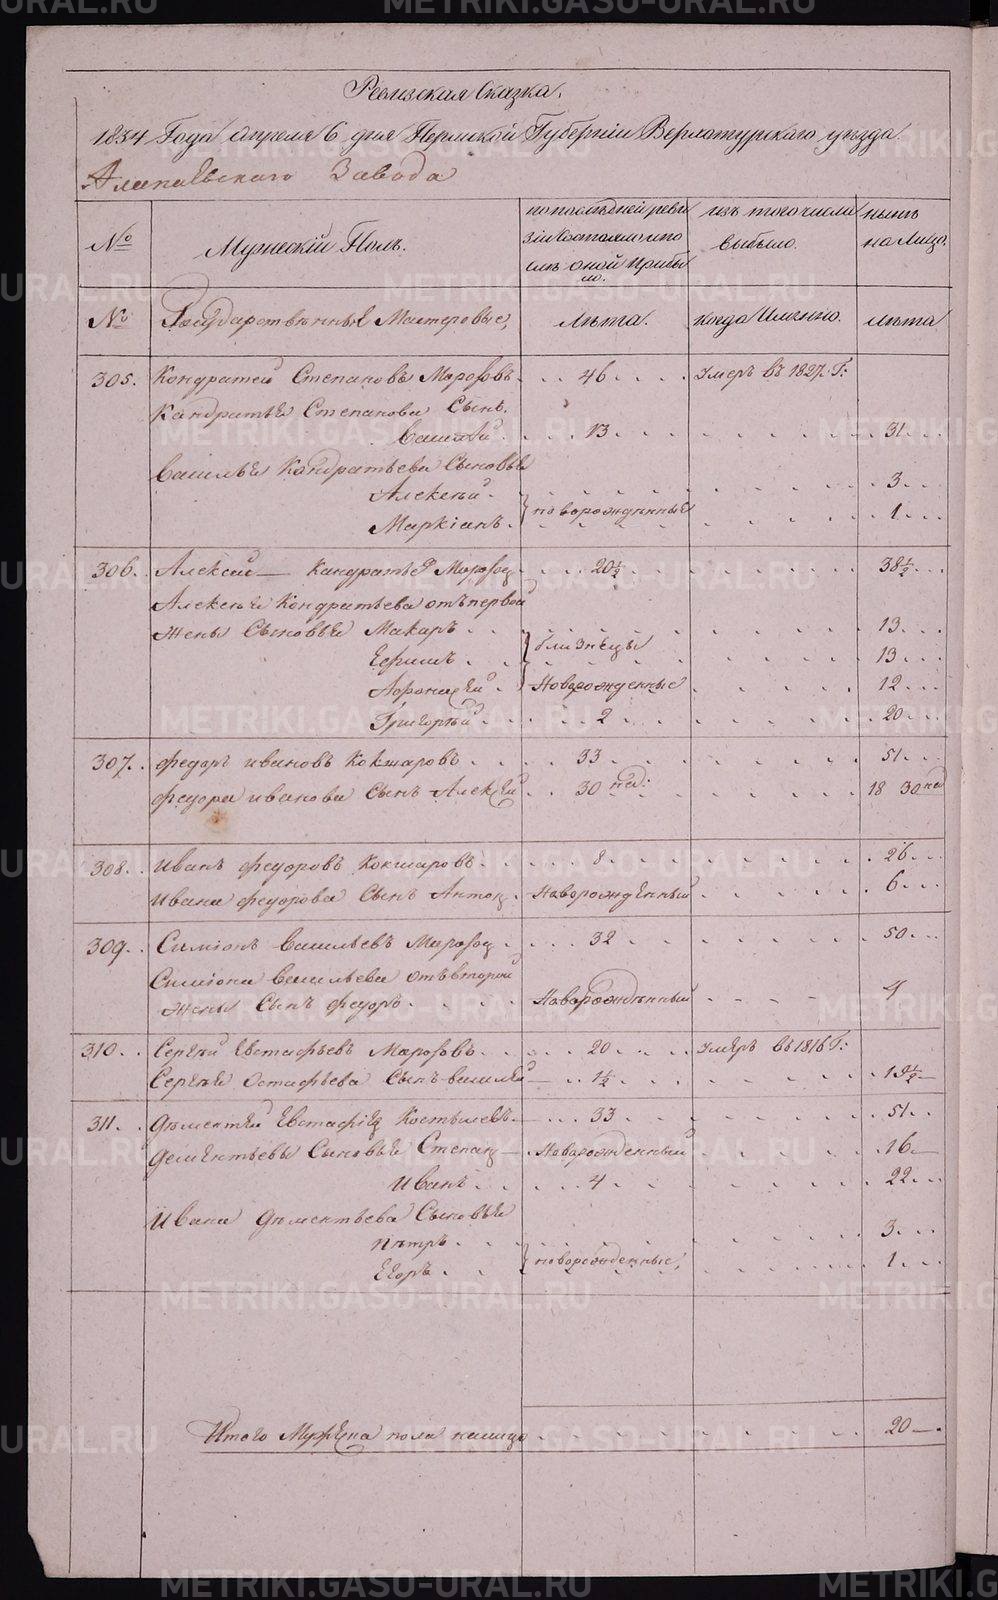 METRIKI.GASO-URAL.RU
Ревизская Сказка.
1834 Года апреля 6 дня Пермской Губернiи Верхотурскаго уѣзда
Алапаевскаго Завода
№ Мужескiй Полъ. по последней ревизiи состояло и после оной прибыло. изъ того числа выбыло. нынѣ на лицо.
№ Государственные Мастеровые, Лѣта. когда Именно. лѣта
305. Кондратей Степановъ Морозовъ 46 Умеръ въ 1827. Г:
Кандратья Степанова Сынъ
Василiй 13 31
Василья Кондратьева Сыновья
Алексей новорожденные 3
Маркiанъ 1
306. Алексей Кандратьев Морозов 20½ 38½
Алексея Кондратьева отъ первой
жены Сыновья Макаръ близнецы 13
Ефимъ 13
Афонасей Новорожденные 12
Григорей 2 20
307. Федоръ ивановъ Кокшаровъ 33 51
Федора иванова Сынъ Алексей 30 нед: 18 30 нед
308. Иванъ федоровъ Кокшаровъ 8 26
Ивана федорова Сынъ Антон Новорожденный 6
309. Симiонъ Васильевъ Морозов 32 50
Симiона Васильева отъ второй
жены Сынъ федоръ Новорожденный 4
310. Сергей Евстафьевъ Морозовъ 20 Умеръ въ 1816 Г:
Сергея Остафьева Сынъ Василей 1½ 19½
311. Дементей Евстафiев Костылевъ 33 51
Дементьевы Сыновья Степан Новорожденный 16
Иванъ 4 22
Ивана Дементьева Сыновья
Петръ новорожденные, 3
Егоръ 1
Итого Мужеска пола налицо 20